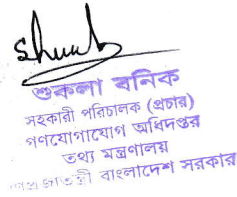 শুকলা বনিক
সহকারী পরিচালক (প্রচার)
গণযোগাযোগ অধিদপ্তর
তথ্য মন্ত্রণালয়
গণপ্রজাতন্ত্রী বাংলাদেশ সরকার